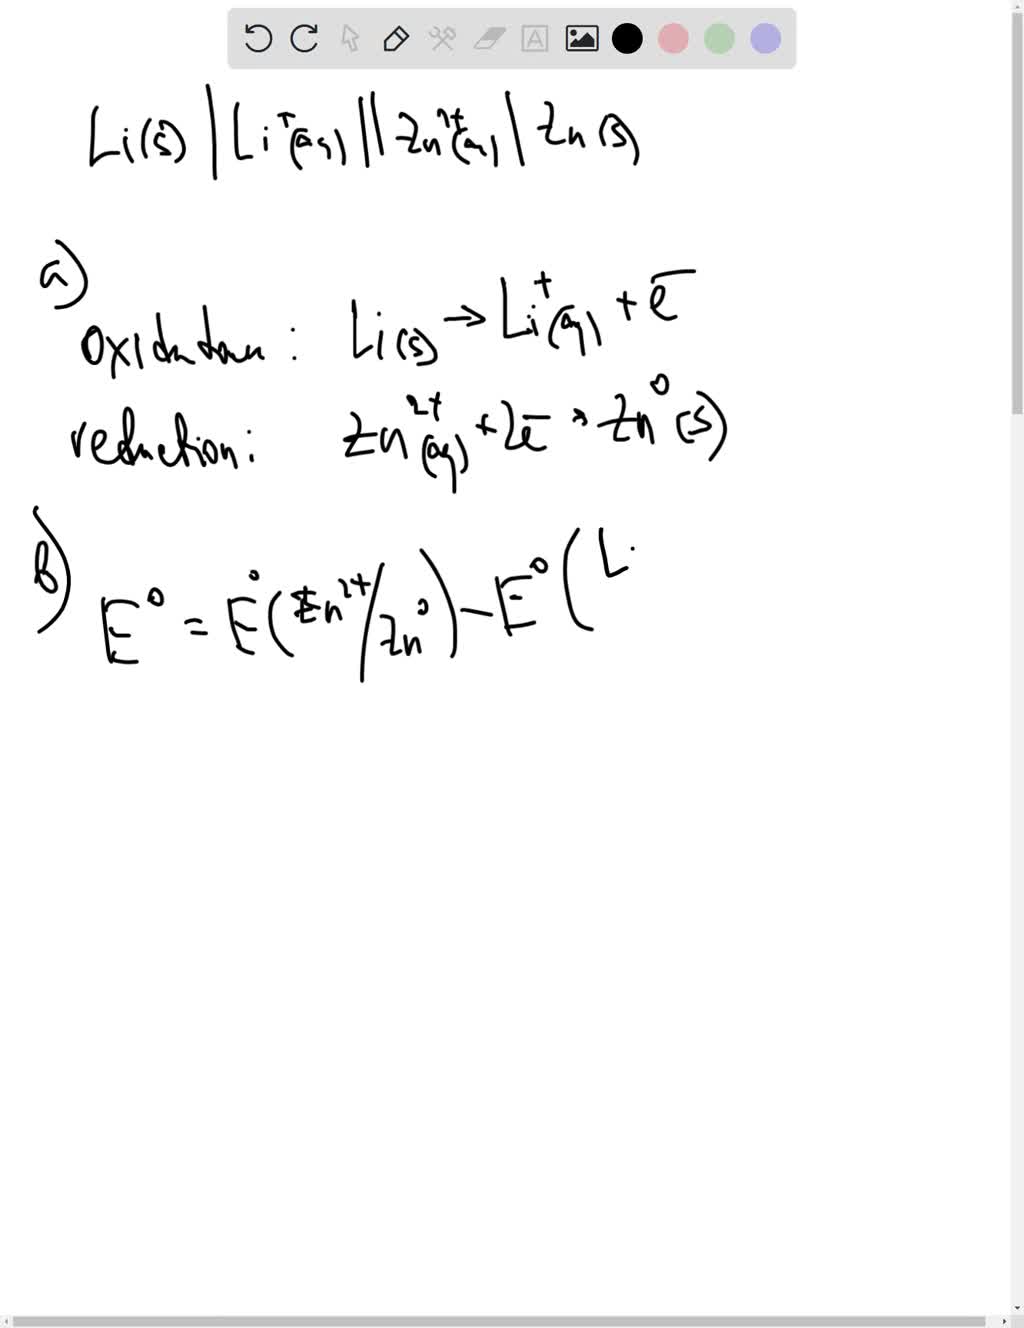 Li(s) | Li⁺(aq) || Zn²⁺(aq) | Zn(s)
a)
oxidation: Li(s) → Li⁺(aq) + e⁻
reduction: Zn²⁺(aq) + 2e⁻ → Zn⁰(s)
b)
E⁰ = E⁰(Zn²⁺/Zn⁰) − E⁰(Li